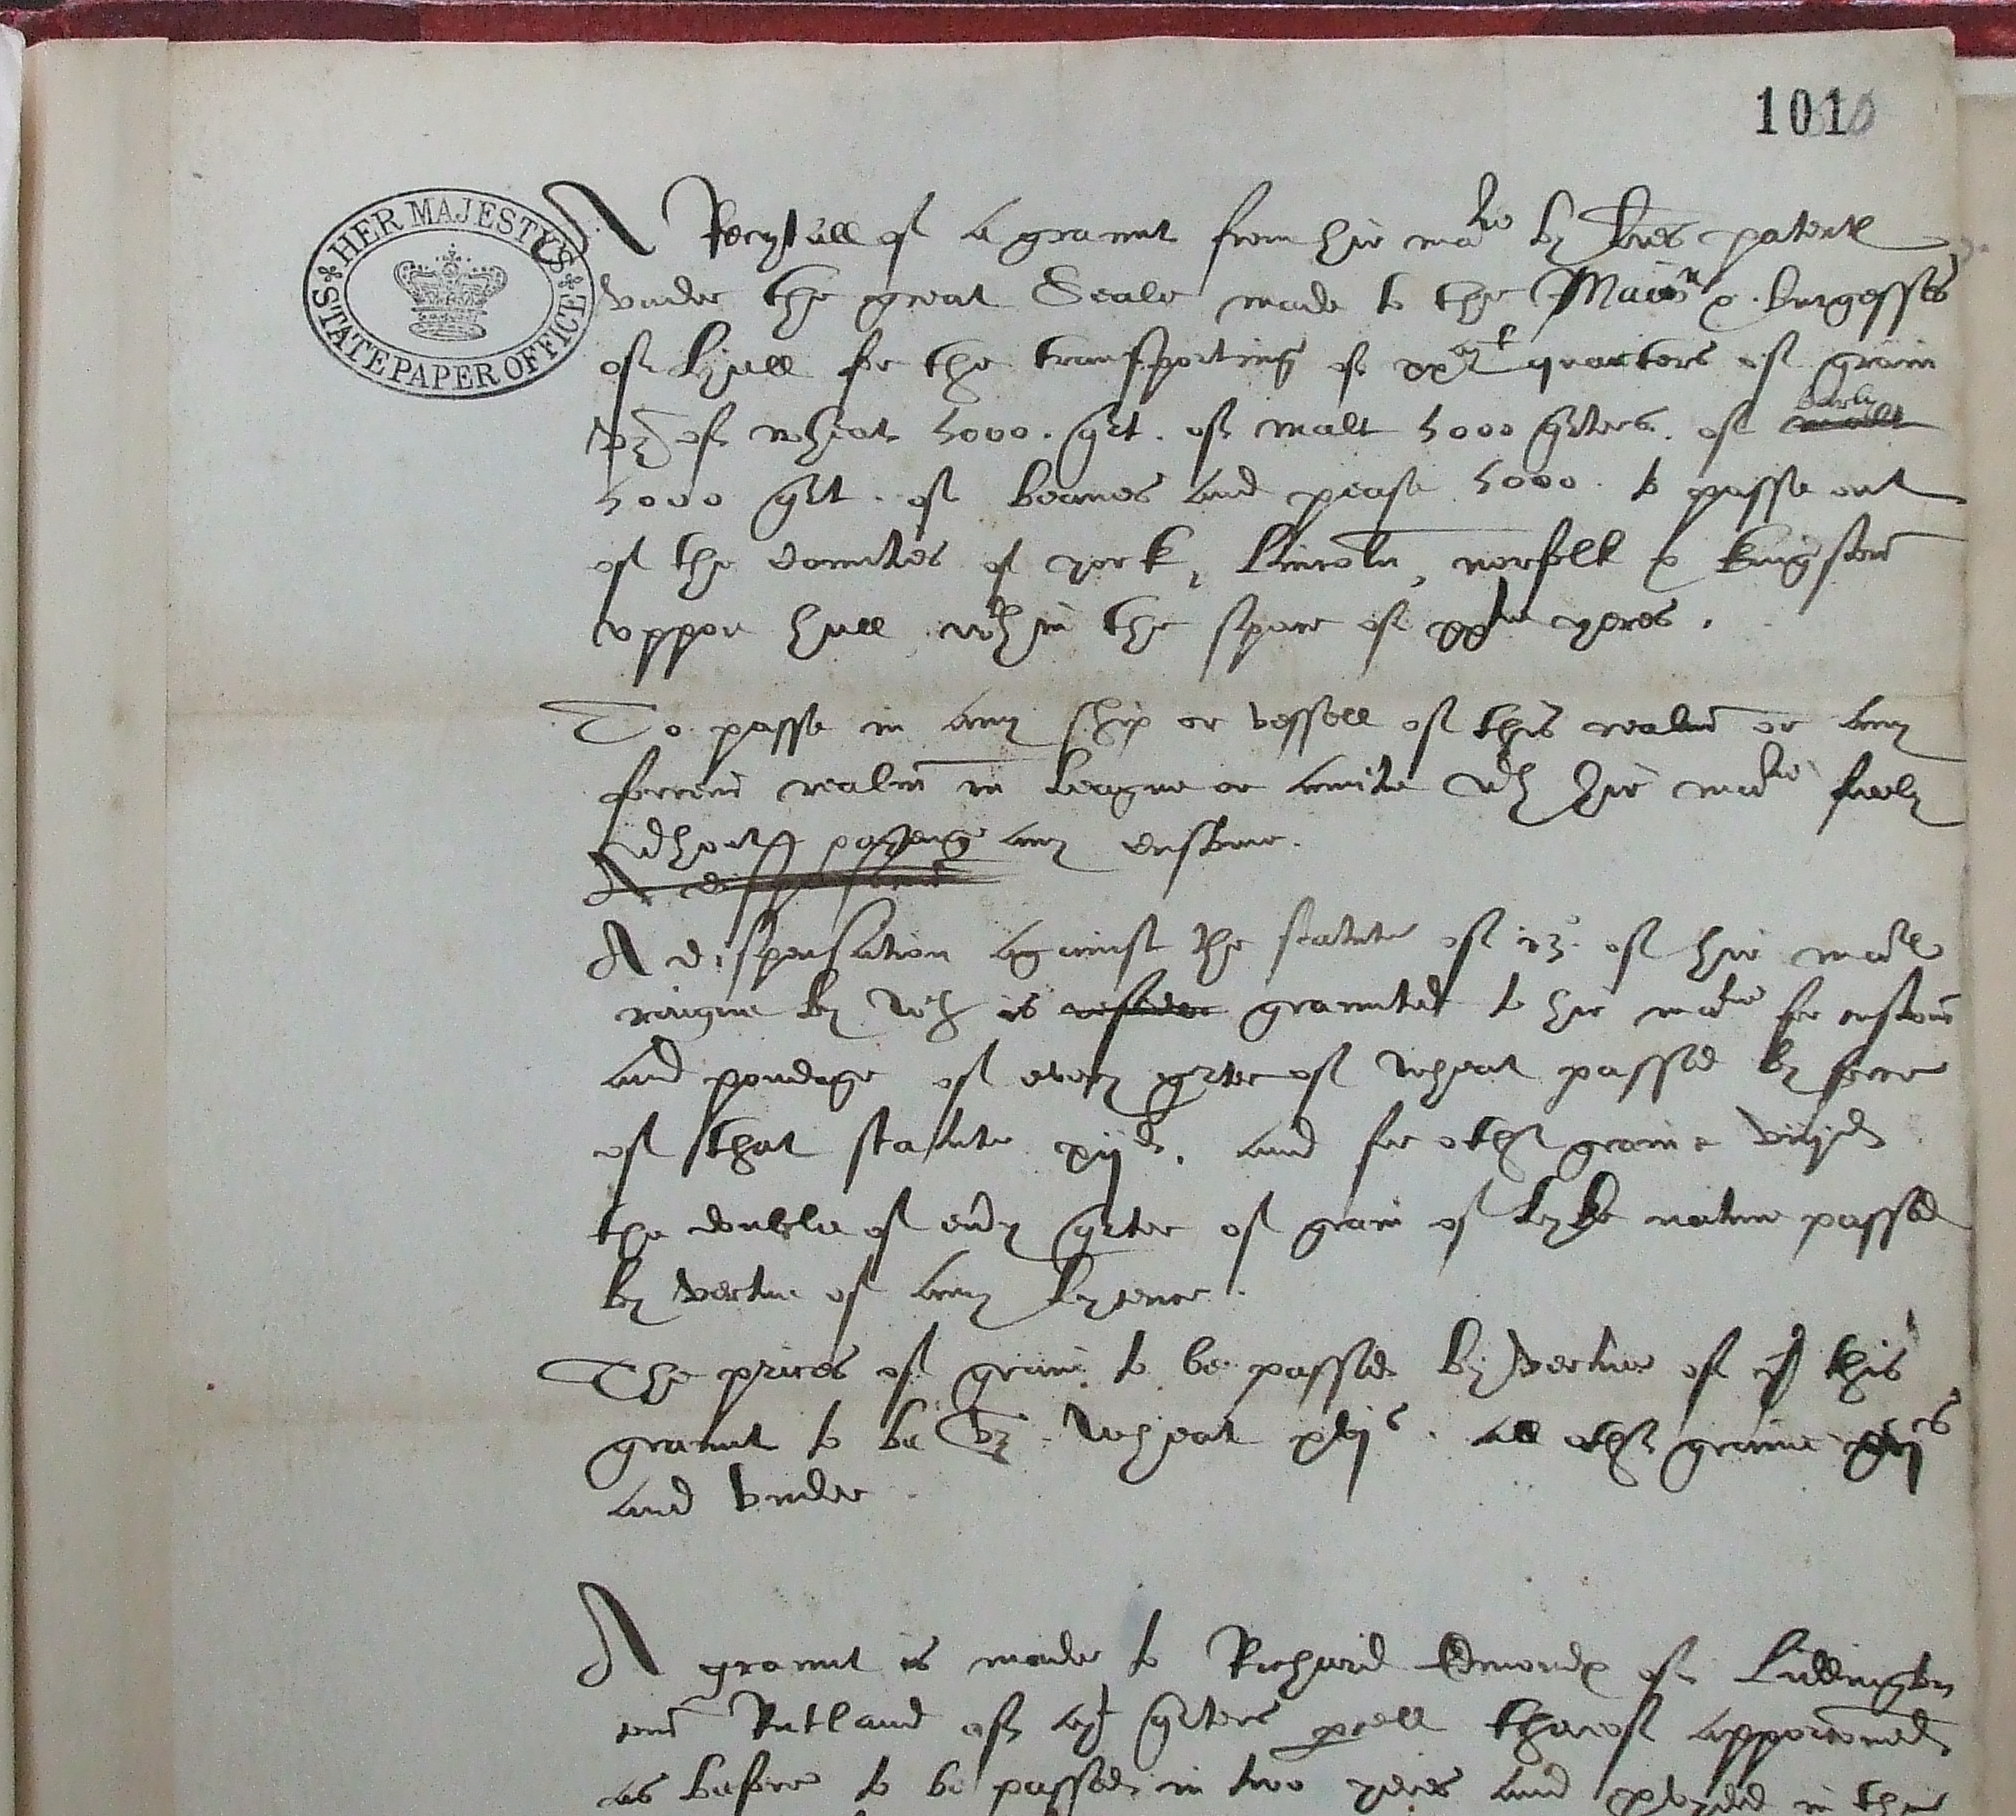 101
HER MAJESTY'S STATE PAPER OFFICE
A Recytall of a graunt from hir ma^tie by l'res patent
vnder the great Seale made to the Maio^r & burgesses
of Hull for the transporting of xx^M quarters of grain
vz of wheat 5000. qrt. of malt 5000 qrters. of malt barly
5000 qrt. of beanes and pease 5000. to passe out
of the counties of york, Lincoln, norfolk & kingston
vppon hull w^th in the space of yeres.
To passe in any ship or vessell of this realm or any
forren realm in league or amitie w^th hir ma^tie freely
w^thout paijeng any custome.
A dispensation
A dispensation against the statute of 13. of hir ma^ts
raigne by w^ch is graunted to hir ma^tie for custom
and pondage of every qrter of wheat passed by force
of that statute xij^d. and for oth^r graine viij^d
the double of eu^ry qrter of grain of lyke nature passed
by vertue of any lycence.
The prices of grain to be passed by vertue of this
graunt to be vz. wheat ^s. all oth^r graine ^s
and vnder.
A graunt is made to Richard Edmonds of Liddington
com Rutland of qrters p'cell thereof apporconed
as before to be passed in two yeres and in this